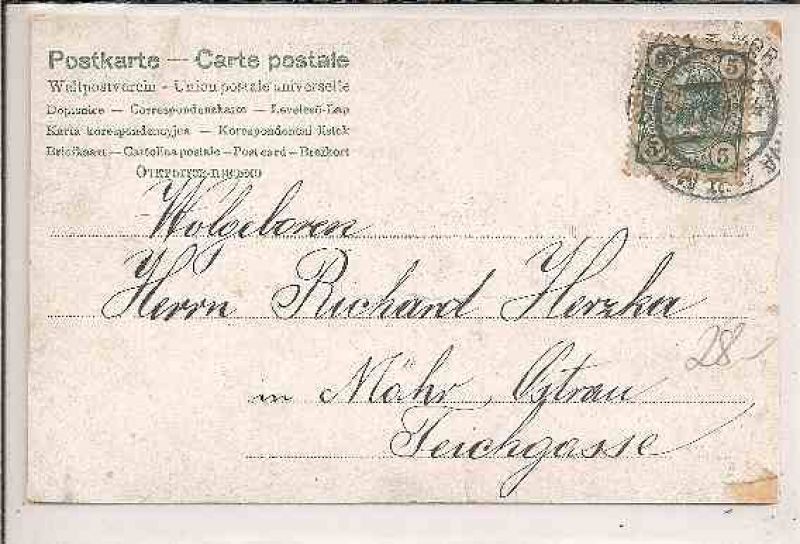 Postkarte — Carte postale
Weltpostverein - Union postale universelle
Dopisnice — Correspondenzkarte — Levelező-Lap
Karta korespondencyjna — Korespondencni listek
Briefkaart — Cartolina postale — Post card — Brefkort
Открытое письмо
5 5
5 5
Wolgeboren
Herrn Richard Herzka
28
in Mähr. Ostrau
Teichgasse